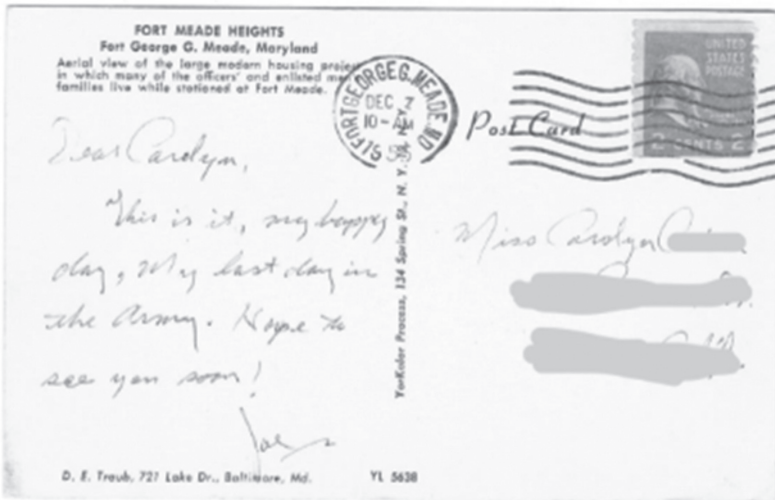 FORT MEADE HEIGHTS
Fort George G. Meade, Maryland
Aerial view of the large modern housing project
in which many of the officers' and enlisted men
families live while stationed at Fort Meade.
FORT GEORGE G. MEADE, MD
DEC 2
10-AM
UNITED
STATES
POSTAGE
2 CENTS 2
Post Card
Dear Carolyn,
This is it, my happy
day, My last day in
the Army. Hope to
see you soon!
Joe
Miss Carolyn
YorKolor Process, 134 Spring St., N. Y. N.Y.
D. E. Traub, 727 Lake Dr., Baltimore, Md.
YL 5638